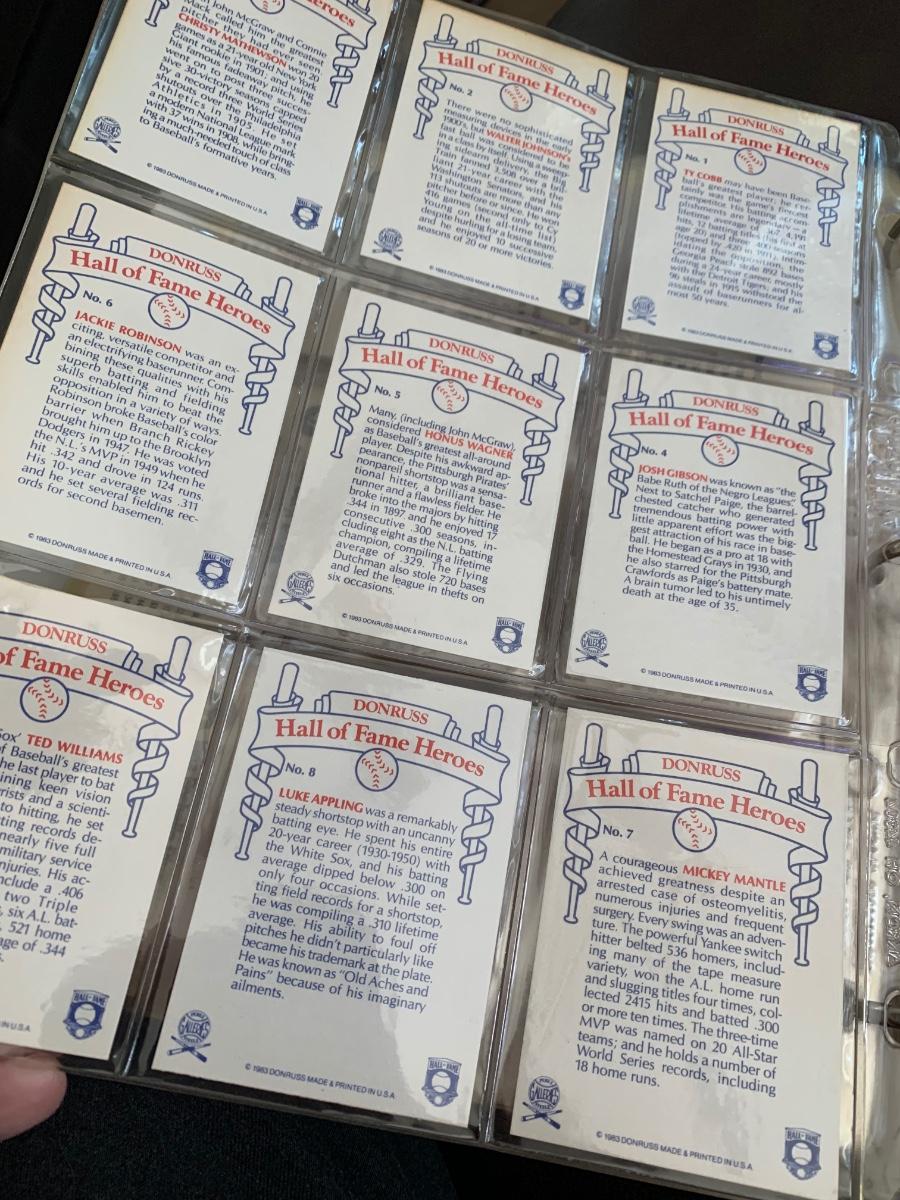 John McGraw and Connie
Mack called him the greatest
pitcher they had ever seen
CHRISTY MATHEWSON won 20
games as a 21-year old New York
Giant rookie in 1901. Using
his famous fadeaway pitch, he
went on to post three succes-
sive 30-victory seasons, capped
by a record three World Series
shutouts over the Philadelphia
Athletics in 1905. He set
a modern National League mark
with 37 wins in 1908, while bring-
ing a much needed touch of class
to Baseball's formative years.
© 1983 DONRUSS MADE & PRINTED IN U.S.A.
DONRUSS
Hall of Fame Heroes
No. 2
There were no sophisticated
measuring devices in the early
1900's, but WALTER JOHNSON'S
fast ball was considered to be
in a class by itself. Using a sweep-
ing sidearm delivery, the Big
Train fanned 3,508 over a bril-
liant 21-year career with the
Washington Senators, and his
113 shutouts are more than any
pitcher before or since. He won
416 games (second only to Cy
Young on the all-time list)
despite hurling for a losing team,
and he enjoyed 10 successive
seasons of 20 or more victories.
© 1983 DONRUSS MADE & PRINTED IN U.S.A.
DONRUSS
Hall of Fame Heroes
No. 1
TY COBB may have been Base-
ball's greatest player; he cer-
tainly was the game's fiercest
competitor. His batting accom-
plishments are legendary — a
lifetime average of .367, 4,191
hits, 12 batting titles (his first at
age 20), and three .400 seasons
(topped by .420 in 1911). Intim-
idating the opposition, the
Georgia Peach stole 892 bases
during a 24-year career, mostly
with the Detroit Tigers, and his
96 steals in 1915 withstood the
assault of baserunners for al-
most 50 years.
© 1983 DONRUSS MADE & PRINTED IN U.S.A.
DONRUSS
Hall of Fame Heroes
No. 6
JACKIE ROBINSON was an ex-
citing, versatile competitor and
an electrifying baserunner. Com-
bining these qualities with his
superb batting and fielding
skills enabled him to beat the
opposition in a variety of ways.
Robinson broke Baseball's color
barrier when Branch Rickey
brought him up to the Brooklyn
Dodgers in 1947. He was voted
the N.L.'s MVP in 1949 when he
hit .342 and drove in 124 runs.
His 10-year average was .311
and he set several fielding rec-
ords for second basemen.
© 1983 DONRUSS MADE & PRINTED IN U.S.A.
HALL OF FAME
DONRUSS
Hall of Fame Heroes
No. 5
Many, (including John McGraw),
considered HONUS WAGNER
as Baseball's greatest all-around
player. Despite his awkward ap-
pearance, the Pittsburgh Pirates'
nonpareil shortstop was a sensa-
tional hitter, a brilliant base-
runner and a flawless fielder. He
broke into the majors by hitting
.344 in 1897 and he enjoyed 17
consecutive .300 seasons, in-
cluding eight as the N.L. batting
champion, compiling a lifetime
average of .329. The Flying
Dutchman also stole 720 bases
and led the league in thefts on
six occasions.
GALLERIES
© 1983 DONRUSS MADE & PRINTED IN U.S.A.
HALL OF FAME
DONRUSS
Hall of Fame Heroes
No. 4
JOSH GIBSON was known as "the
Babe Ruth of the Negro Leagues".
Next to Satchel Paige, the barrel-
chested catcher who generated
tremendous batting power with
little apparent effort was the big-
gest attraction of his race in base-
ball. He began as a pro at 18 with
the Homestead Grays in 1930, and
he also starred for the Pittsburgh
Crawfords as Paige's battery mate.
A brain tumor led to his untimely
death at the age of 35.
GALLERIES
© 1983 DONRUSS MADE & PRINTED IN U.S.A.
HALL OF FAME
DONRUSS
of Fame Heroes
Sox' TED WILLIAMS
of Baseball's greatest
he last player to bat
ining keen vision
rists and a scienti-
to hitting, he set
ting records de-
nearly five full
military service
njuries. His ac-
nclude a .406
two Triple
six A.L. bat-
521 home
age of .344
IN U.S.A.
HALL OF FAME
DONRUSS
Hall of Fame Heroes
No. 8
LUKE APPLING was a remarkably
steady shortstop with an uncanny
batting eye. He spent his entire
20-year career (1930-1950) with
the White Sox, and his batting
average dipped below .300 on
only four occasions. While set-
ting field records for a shortstop,
he was compiling a .310 lifetime
average. His ability to foul off
pitches he didn't particularly like
became his trademark at the plate.
He was known as "Old Aches and
Pains" because of his imaginary
ailments.
GALLERIES
© 1983 DONRUSS MADE & PRINTED IN U.S.A.
HALL OF FAME
DONRUSS
Hall of Fame Heroes
No. 7
A courageous MICKEY MANTLE
achieved greatness despite an
arrested case of osteomyelitis,
numerous injuries and frequent
surgery. Every swing was an adven-
ture. The powerful Yankee switch
hitter belted 536 homers, includ-
ing many of the tape measure
variety, won the A.L. home run
and slugging titles four times, col-
lected 2415 hits and batted .300
or more ten times. The three-time
MVP was named on 20 All-Star
teams; and he holds a number of
World Series records, including
18 home runs.
GALLERIES
© 1983 DONRUSS MADE & PRINTED IN U.S.A.
HALL OF FAME